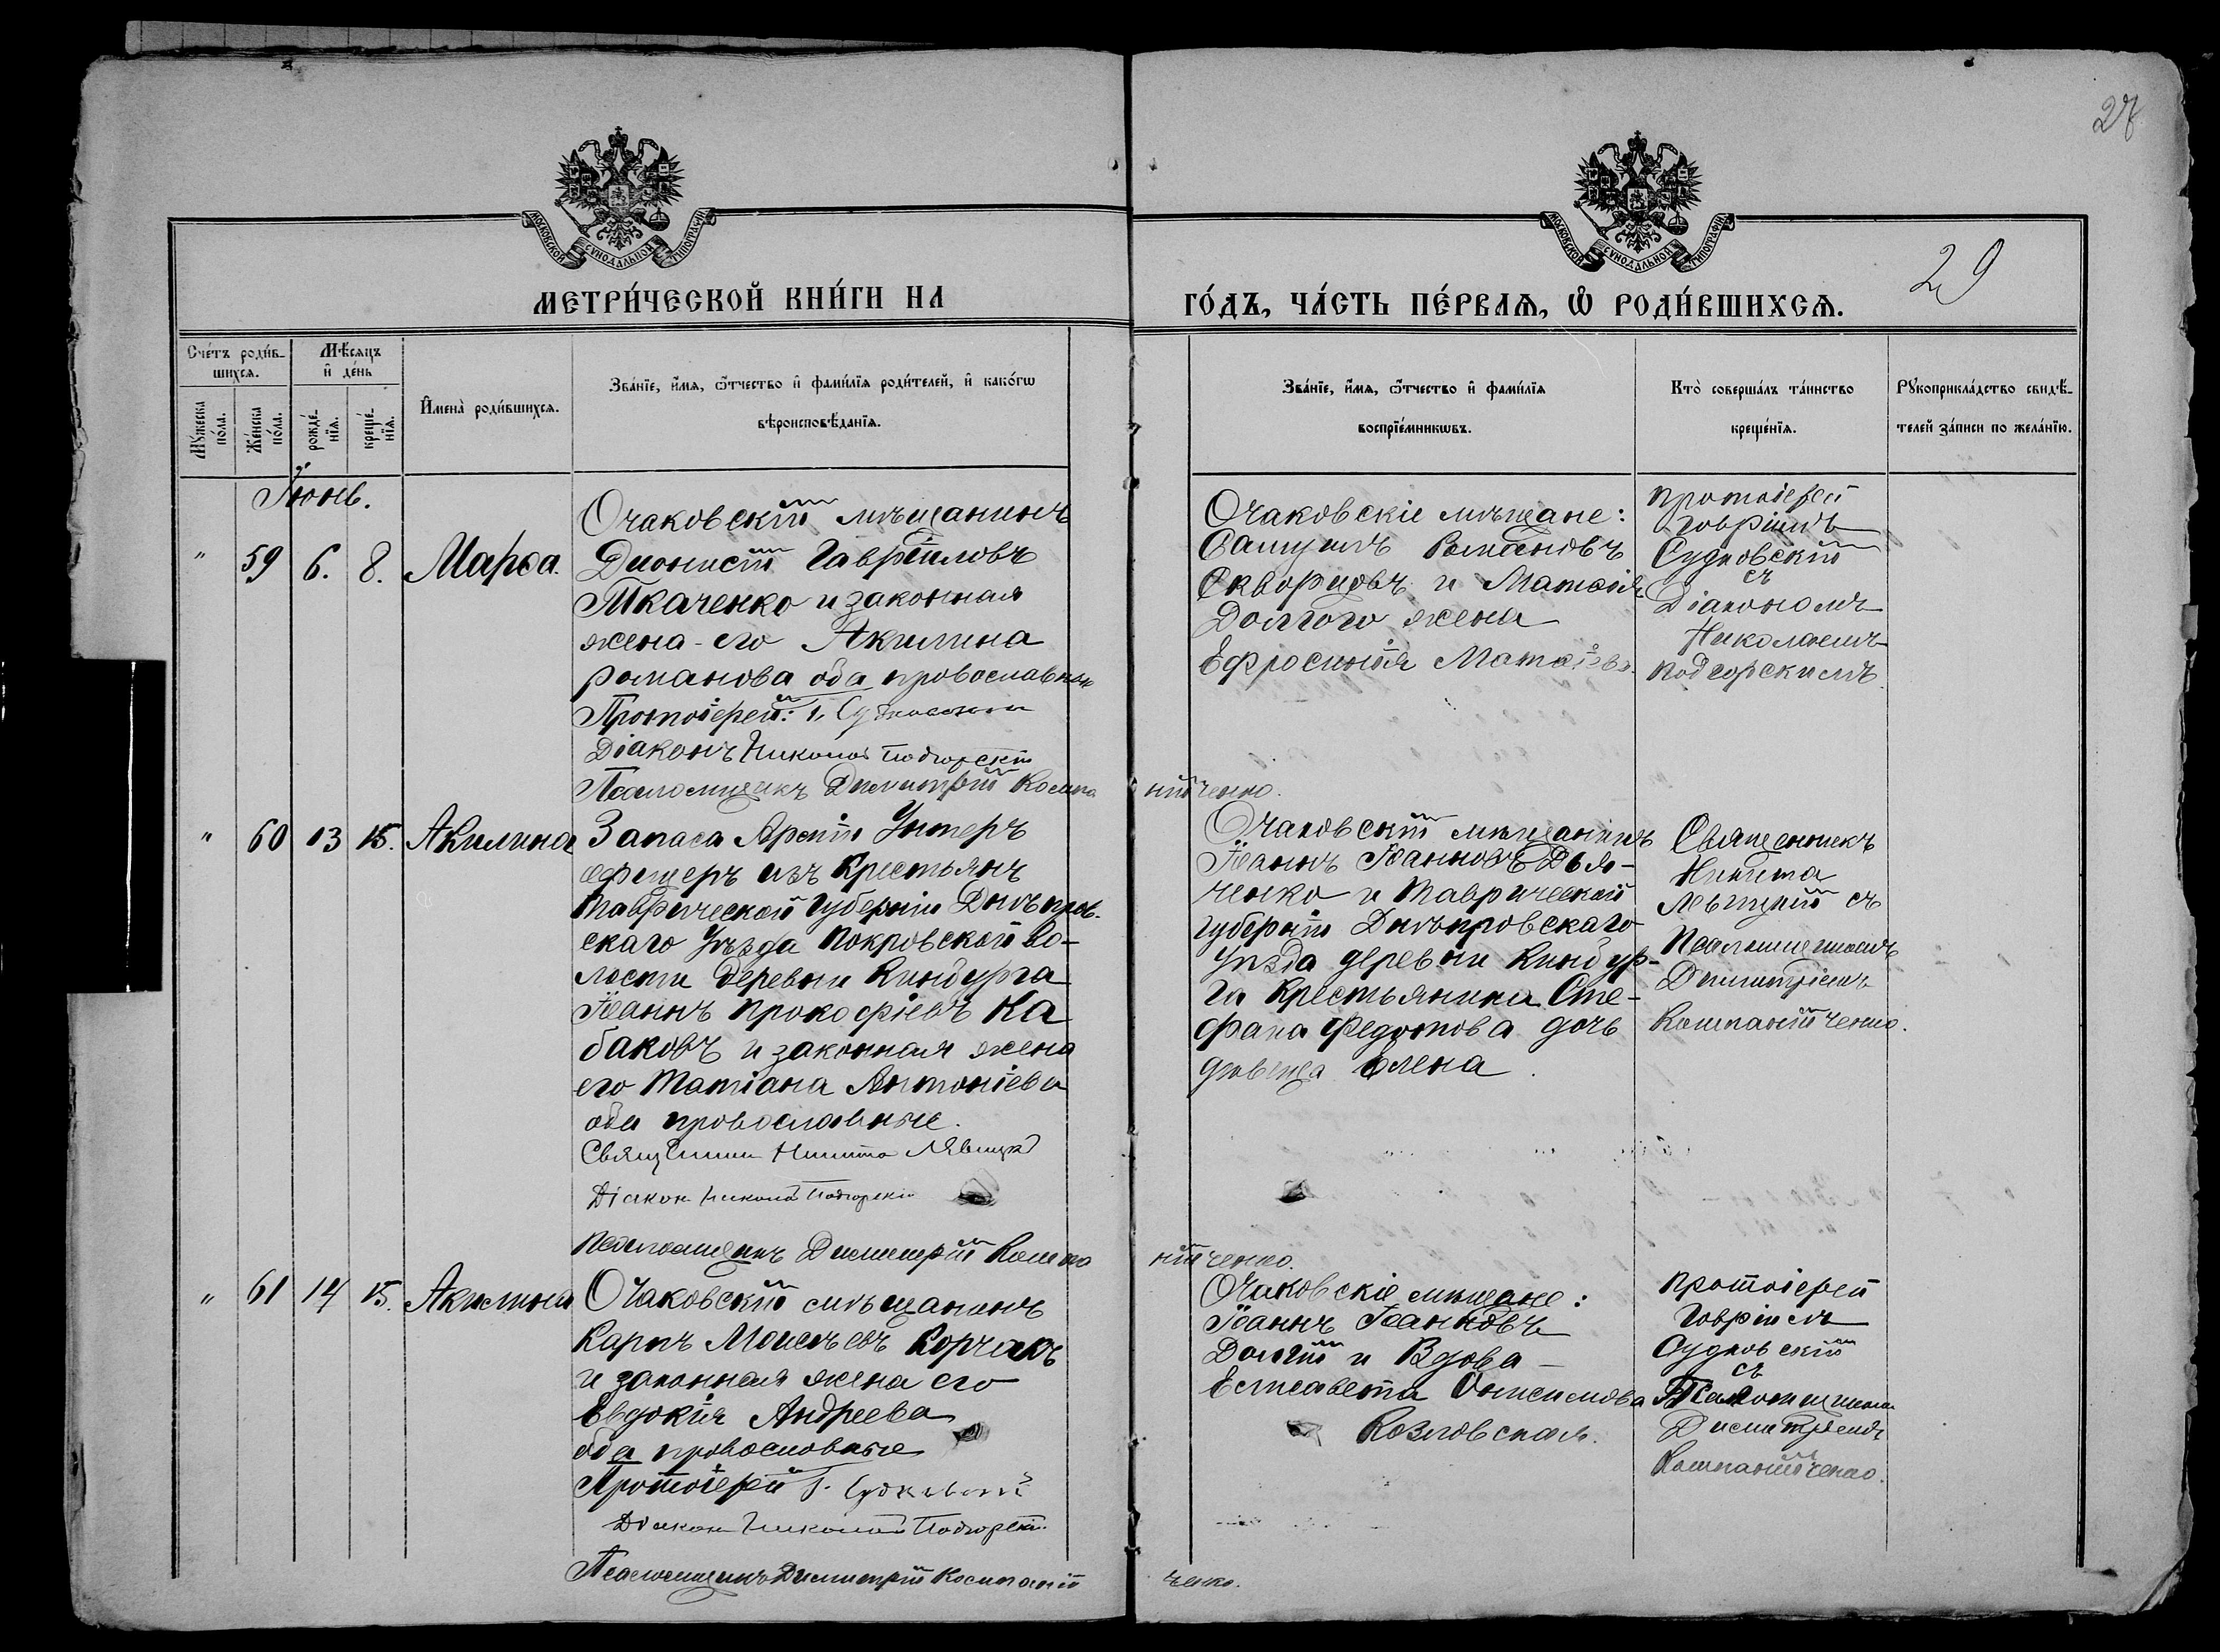 27
29
МОСКОВСКОЙ СѴНОДАЛЬНОЙ ТИПОГРАФІИ
МОСКОВСКОЙ СѴНОДАЛЬНОЙ ТИПОГРАФІИ
МЕТРИ́ЧЕСКОЙ КНИ́ГИ НА
ГО́ДЪ, ЧА́СТЬ ПЕ́РВАѦ, Ѡ҆ РОДИ́ВШИХСѦ.
Сче́тъ роди́в-
шихсѧ.
Мѣ́сѧцъ
и҆ де́нь
Мꙋ́жеска
по́ла.
Же́нска
по́ла.
рожде́-
нїѧ.
креще́-
нїѧ.
И҆мена̀ роди́вшихсѧ.
Зва́нїе, и҆́мѧ, ѻ҆́тчество и҆ фами́лїѧ роди́телей, и҆ како́гѡ
вѣроисповѣ́данїѧ.
Зва́нїе, и҆́мѧ, ѻ҆́тчество и҆ фами́лїѧ
воспрїе́мникѡвъ.
Кто̀ соверша́лъ та́инство
креще́нїѧ.
Рꙋкоприкла́дство свидѣ́-
телей за́писи по жела́нїю.
Іюнь.
" 59 6. 8. Марѳа.
Очаковскій мѣщанинъ
Діонисій Гавріиловъ
Ткаченко и законная
жена-его Акилина
Романова оба православные
Протоіерей: Г. Судковскій
Діаконъ Николай Подгорскій
Псаломщикъ Димитрій Компа
нійченко.
Очаковскіе мѣщане:
Самуилъ Романовъ
Скворцовъ и Матѳія
Долгого жена
Ефросинія Матѳіева.
Протоіерей
Гавріилъ
Судковскій
съ
Діакономъ
Николаемъ
Подгорскимъ.
" 60 13 15. Акилина
Запаса Арміи Унтеръ
офицеръ изъ крестьянъ
Таврической губерніи Днѣпров-
скаго Уѣзда Покровской во-
лости деревни Кинбурга
Іоаннъ Прокофіевъ Ка
баковъ и законная жена
его Татіана Антоніева
оба православные.
Священникъ Никита Лѣвицкій
Діаконъ Николай Подгорскій
Псаломщикъ Димитрій Компа
нійченко.
Очаковскій мѣщанинъ
Іоаннъ Іоанновъ Дья-
ченко и Таврической
губерніи Днѣпровскаго
Уѣзда деревни Кинбур-
га крестьянина Сте-
фана Федотова дочь
дѣвица Елена.
Священникъ
Никита
Лѣвицкій съ
Псаломщикомъ
Димитріемъ
Компанійченко.
" 61 14 15. Акилина
Очаковскій мѣщанинъ
Карпъ Моисѣевъ Корчакъ
и законная жена его
Евдокія Андреева
оба православные
Протоіерей Г. Судковскій
Діаконъ Николай Подгорскій
Псаломщикъ Димитрій Компаній
ченко.
Очаковскіе мѣщане:
Іоаннъ Іоанновъ
Долгій и Вдова
Елисавета Онисимова
Козловская.
Протоіерей
Гавріилъ
Судковскій
съ
Псаломщикомъ
Димитріемъ
Компанійченко.